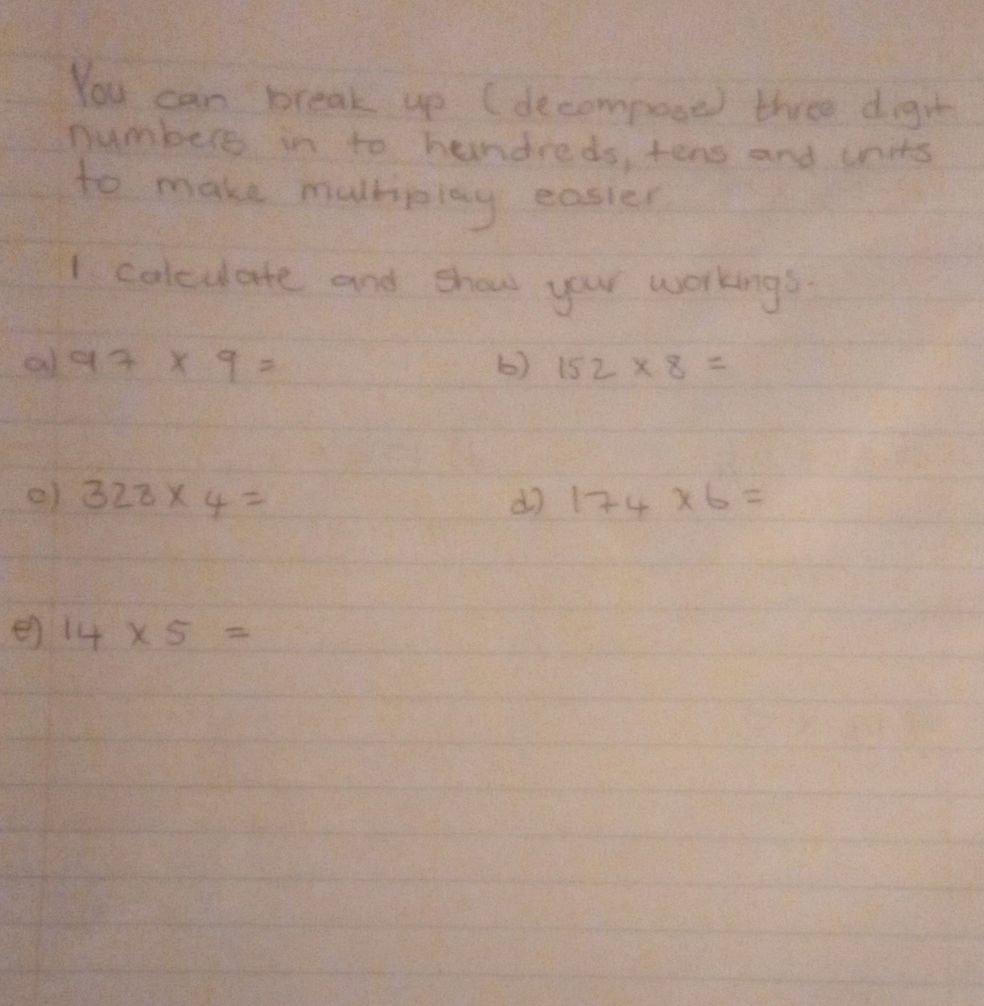 You can break up (decompose) three digit
numbers in to hundreds, tens and units
to make multiplay easier
1. calculate and show your workings.
a) 97 x 9 = b) 152 x 8 =
c) 323 x 4 = d) 174 x 6 =
e) 14 x 5 =